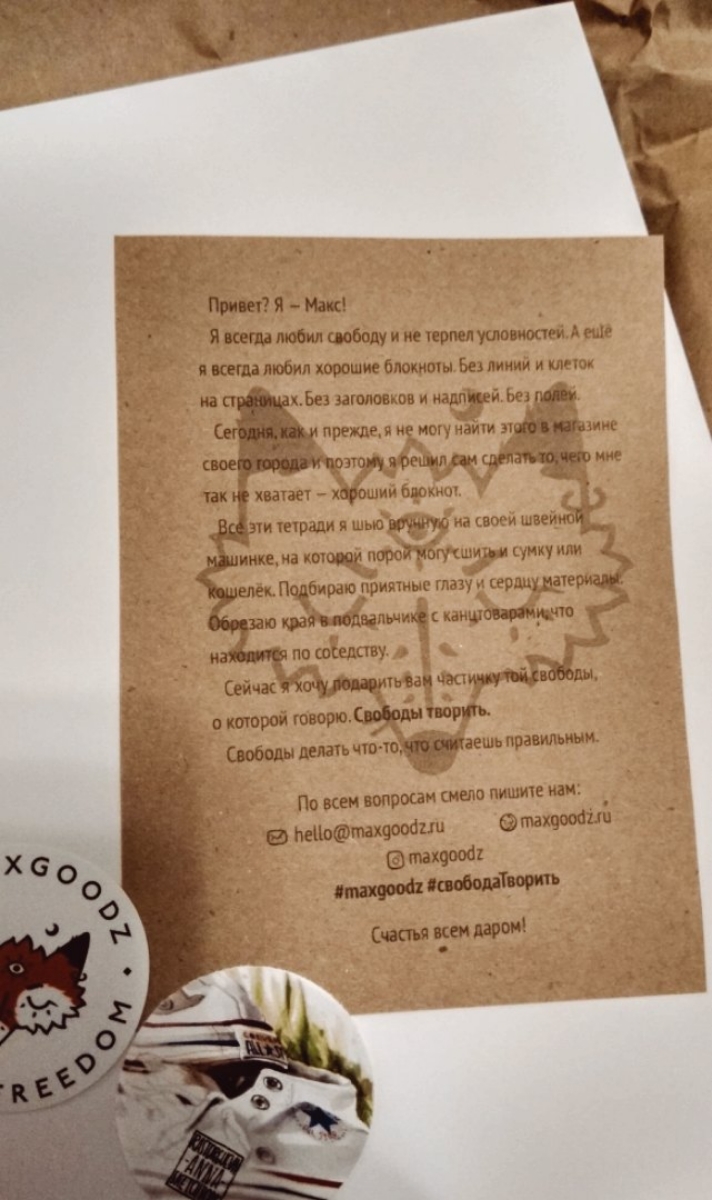 Привет? Я – Макс!
Я всегда любил свободу и не терпел условностей. А ещё
я всегда любил хорошие блокноты. Без линий и клеток
на страницах. Без заголовков и надписей. Без полей.
Сегодня, как и прежде, я не могу найти этого в магазине
своего города и поэтому я решил сам сделать то, чего мне
так не хватает – хороший блокнот.
Все эти тетради я шью вручную на своей швейной
машинке, на которой порой могу сшить и сумку или
кошелёк. Подбираю приятные глазу и сердцу материалы.
Обрезаю края в подвальчике с канцтоварами, что
находится по соседству.
Сейчас я хочу подарить вам частичку той свободы,
о которой говорю. Свободы творить.
Свободы делать что-то, что считаешь правильным.
По всем вопросам смело пишите нам:
hello@maxgoodz.ru maxgoodz.ru
maxgoodz
#maxgoodz #свободаТворить
Счастья всем даром!
XGOODZ •
REEDOM
ALL
-ANNA-